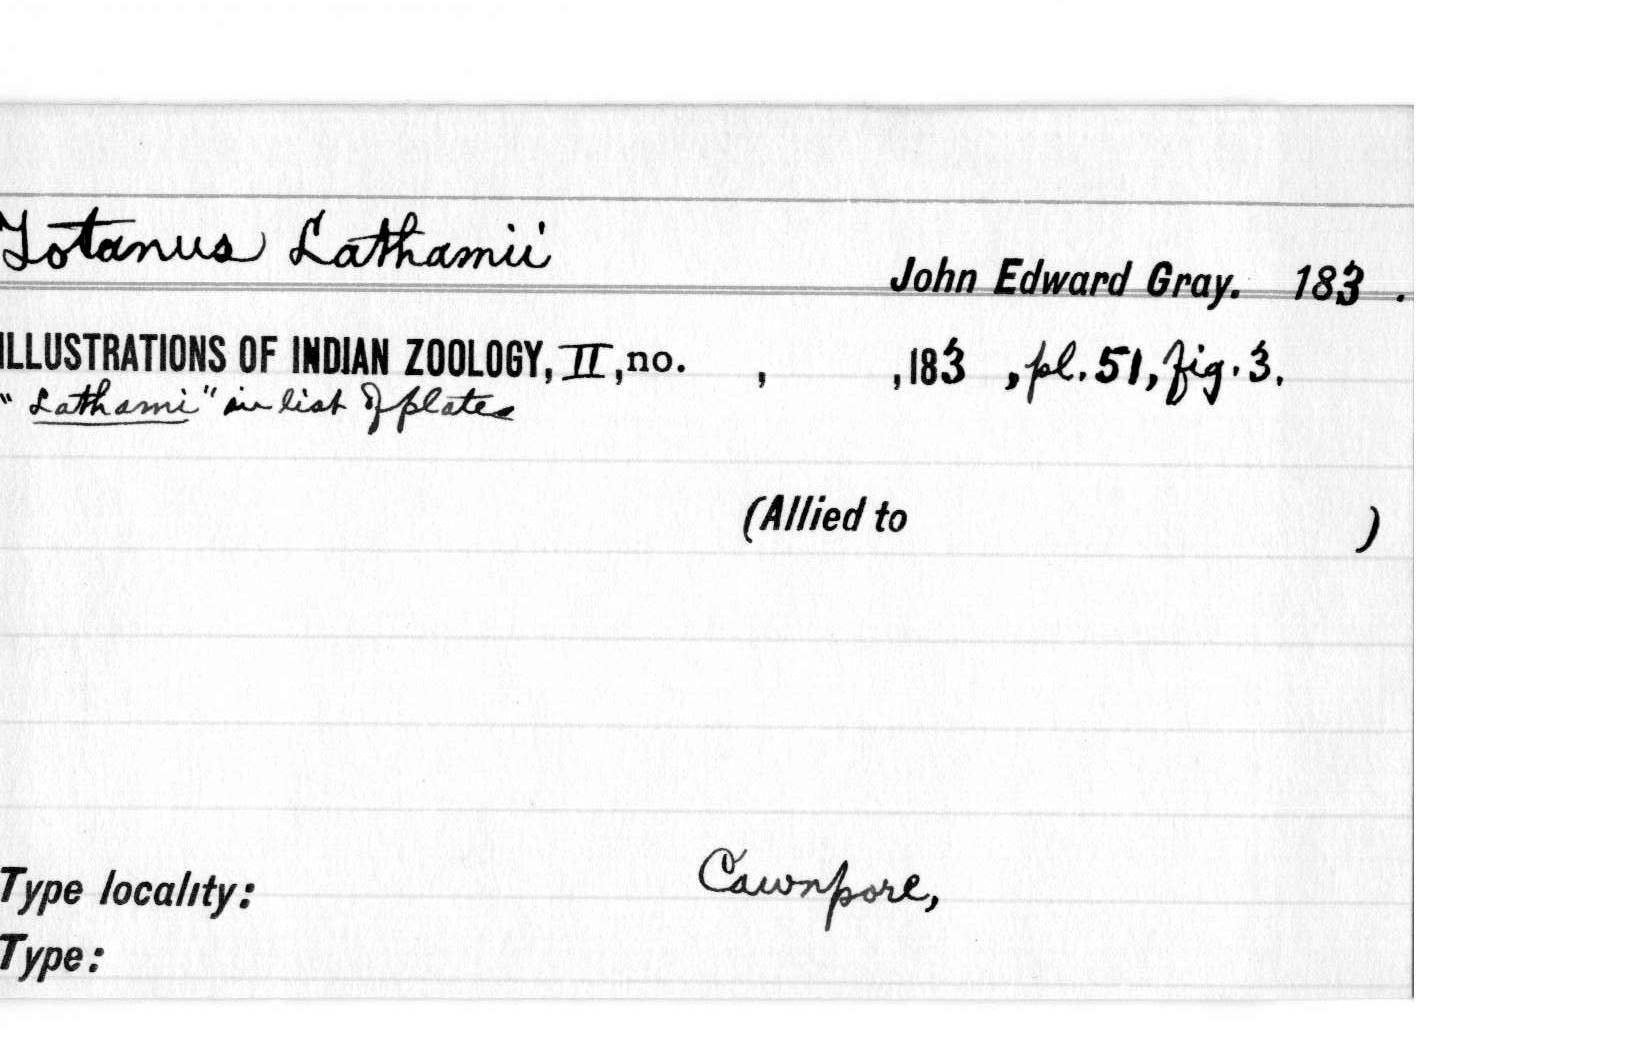 Totanus Lathamii
John Edward Gray. 183 .
ILLUSTRATIONS OF INDIAN ZOOLOGY, II, no. , , 183 , pl. 51, fig. 3.
"Lathami" in list of plates
(Allied to )
Type locality: Cawnpore,
Type: